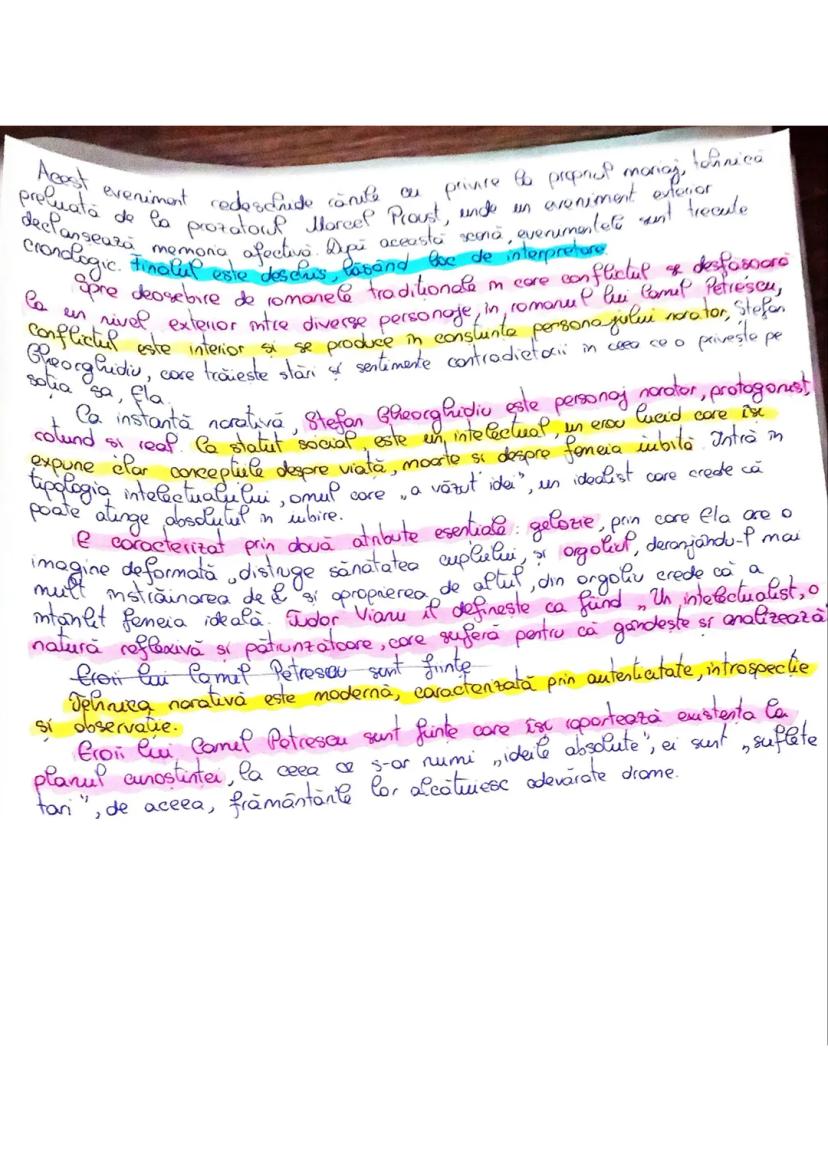 Acest eveniment redeschide rănile cu privire la propriul mariaj, tehnică
preluată de la prozatorul Marcel Proust, unde un eveniment exterior
declanșează memoria afectivă. După această scenă, evenimentele sunt trecute
cronologic. Finalul este deschis, lăsând loc de interpretare.
Spre deosebire de romanele tradiționale în care conflictul se desfășoară
la un nivel exterior între diverse personaje, în romanul lui Camil Petrescu,
conflictul este interior și se produce în conștiința personajului narator, Ștefan
Gheorghidiu, care trăiește stări și sentimente contradictorii în ceea ce o privește pe
soția sa, Ela.
Ca instanță narativă, Ștefan Gheorghidiu este personaj narator, protagonist,
rotund si real. Ca statut social, este un intelectual, un erou lucid care își
expune clar conceptiile despre viață, moarte si despre femeia iubită. Intră în
tipologia intelectualului, omul care „a văzut idei", un idealist care crede că
poate atinge absolutul în iubire.
E caracterizat prin două atribute esențiale: gelozie, prin care Ela are o
imagine deformată, distruge sănătatea cuplului, și orgoliul, deranjându-l mai
mult înstrăinarea de el și apropierea de altul, din orgoliu crede că a
întânlit femeia ideală. Tudor Vianu îl definește ca fiind „Un intelectualist, o
natură reflexivă și pătrunzătoare, care suferă pentru că gândește și analizează
Eroii lui Camil Petrescu sunt ființe
Tehnica narativă este modernă, caracterizată prin autenticitate, introspecție
și observație.
Eroii lui Camil Petrescu sunt ființe care își raportează existența la
planul cunoștinței, la ceea ce s-ar numi „ideile absolute", ei sunt „suflete
tari", de aceea, frământările lor alcătuiesc adevărate drame.